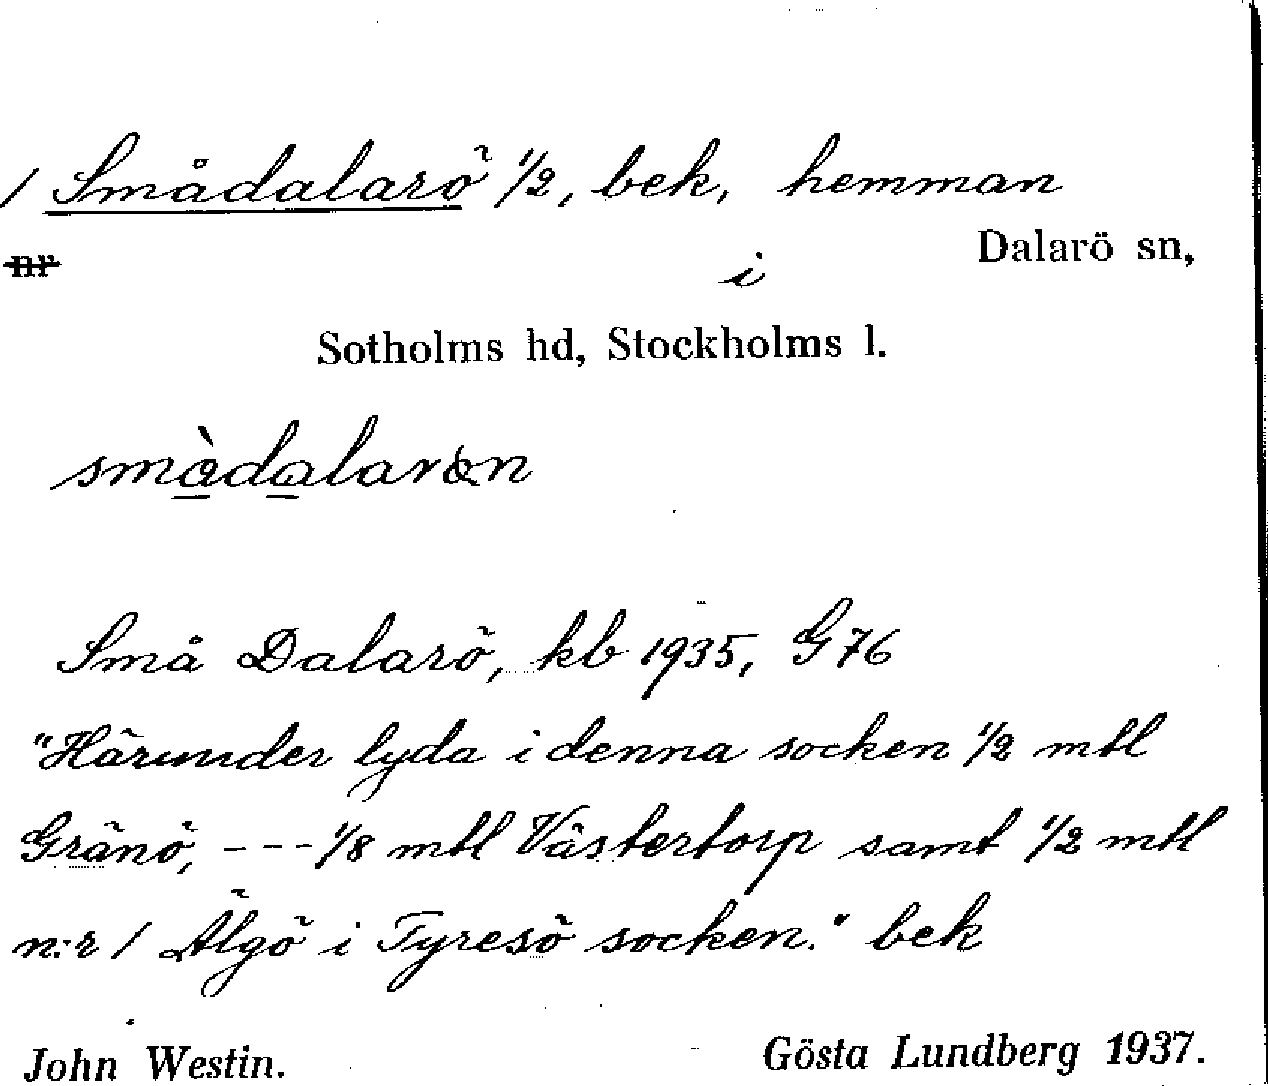 / Smådalarö 1/2, bek, hemman
nr i Dalarö sn,
Sotholms hd, Stockholms l.
Små Dalarö, kb 1935, G 76
"Härunder lyda i denna socken 1/2 mtl
Gränö, --- 1/8 mtl Västertorp samt 1/2 mtl
n:r 1 Älgö i Tyresö socken." bek
John Westin. Gösta Lundberg 1937.